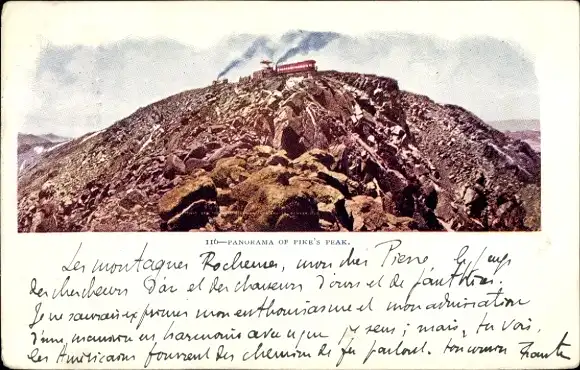 116—PANORAMA OF PIKE'S PEAK.
Les montagnes Rocheuses, mon cher Pierre, le pays
des chercheurs d'or et des chasseurs d'ours et de panthères.
Je ne saurais exprimer mon enthousiasme et mon admiration
d'une manière en harmonie avec ce que je sens; mais, tu vois,
les Américains fourrent des chemins de fer partout. ton cousin